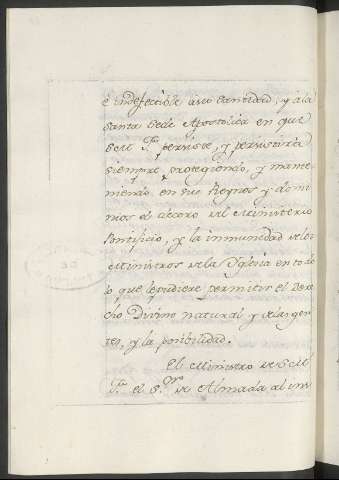 è indefectible à su Santidad, y à la
Santa Sede Apostolica en que
S. M. F.ma persiste, y persistirà
siempre protegiendo, y mante-
niendo en sus Reynos y domi
nios el decoro del Ministerio
Pontificio, y la inmunidad de los
Ministros de la Yglesia en todo
lo que lo pudiere permitir el Dere
cho Divino natural y de las gen
tes, y la posibilidad.
El Ministro de S. M.
F.ma el S.or de Almada al ins
DE